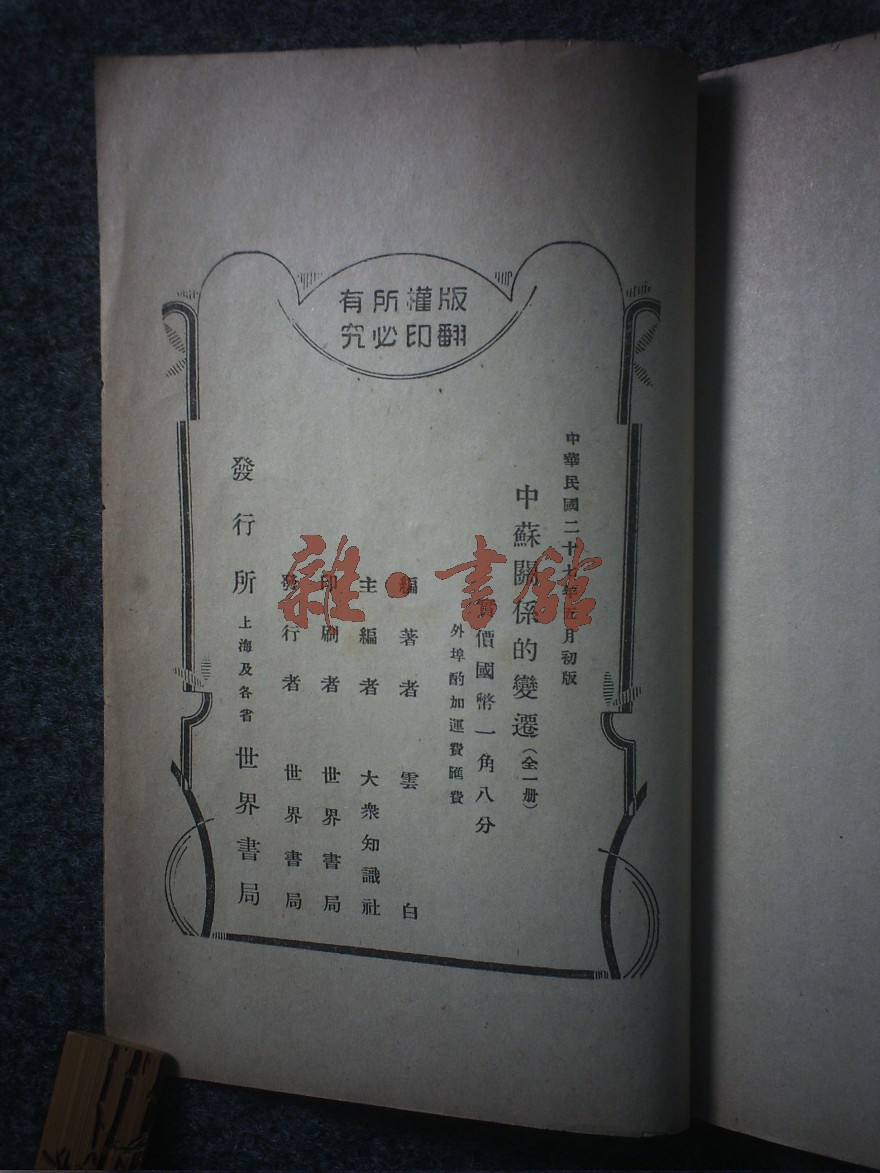 版權所有
翻印必究
中華民國二十七年元月初版
中蘇關係的變遷(全一册)
實價國幣一角八分
外埠酌加運費匯費
編著者 雲白
主編者 大衆知識社
印刷者 世界書局
發行者 世界書局
發行所 上海及各省 世界書局
雜·書館